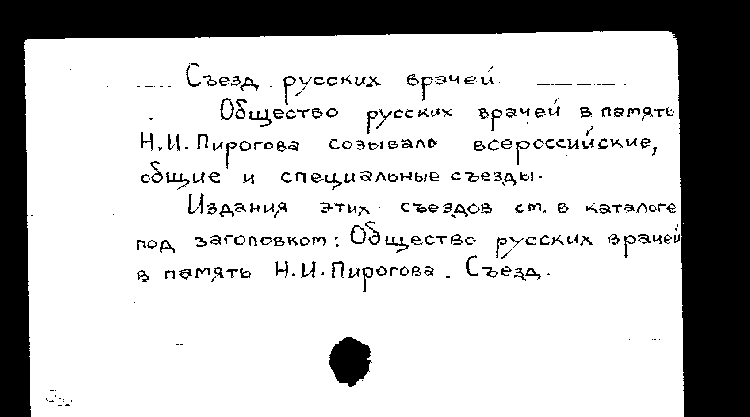 Съезд русских врачей
Общество русских врачей в память
Н.И.Пирогова созывало всероссийские,
общие и специальные съезды.
Издания этих съездов см. в каталоге
под заголовком: Общество русских врачей
в память Н.И.Пирогова. Съезд.